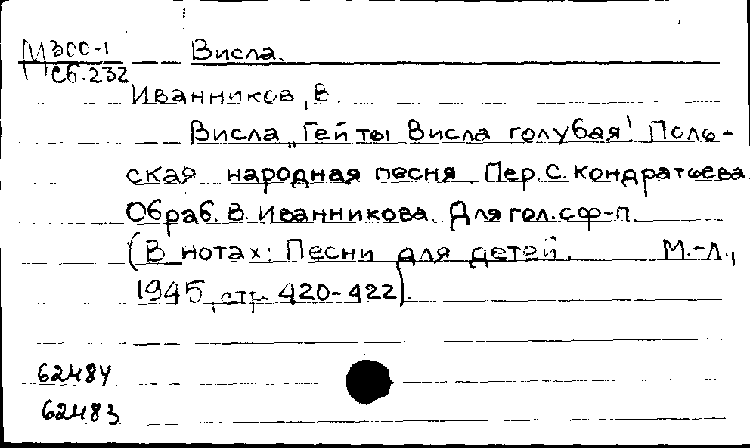 М 3СС-1 Висла.
Сб.232
Иванников, В.
Висла „Гей ты Висла голубая! Поль-
ская народная песня. Пер. С. Кондратьева.
Обраб. В. Иванникова. Для гол. с ф-п.
(В нотах: Песни для детей. М.-Л.,
1945, стр. 420-422).
62484
62483